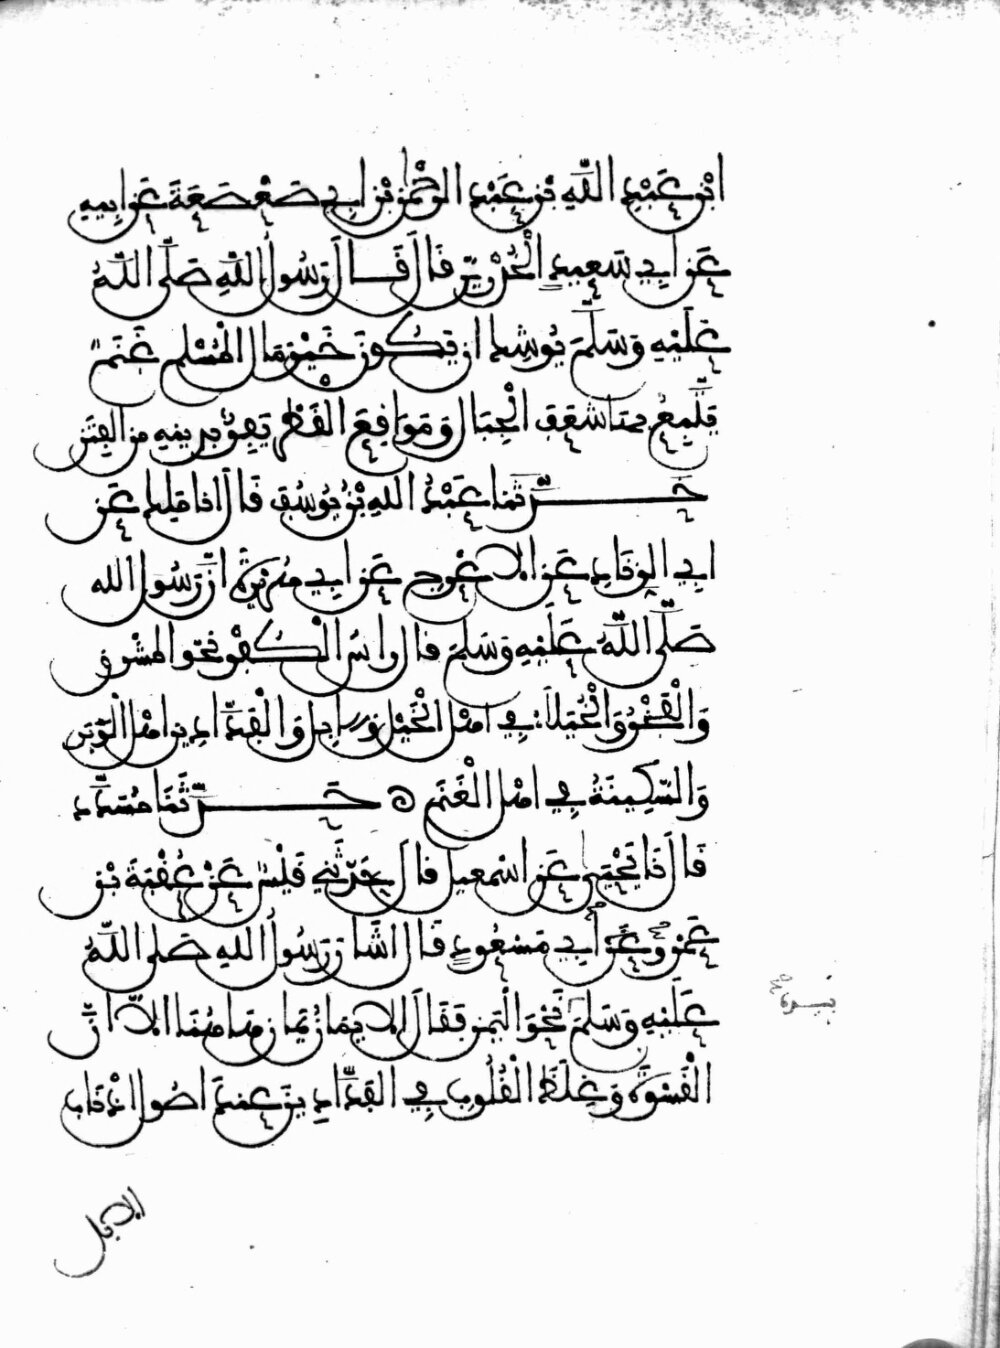 ابْنِ عَبْدِ اللَّهِ بْنِ عَبْدِ الرَّحْمٰنِ بْنِ ابِي صَعْصَعَةَ عَنْ ابِيهِ
عَنْ ابِي سَعِيدٍ الْخُدْرِيِّ قَالَ قَالَ رَسُولُ اللَّهِ صَلَّى اللَّهُ
عَلَيْهِ وَسَلَّمَ يُوشِكُ انْ يَكُونَ خَيْرَ مَالِ الْمُسْلِمِ غَنَمٌ
يَتَّبِعُ بِهَا شَعَفَ الْجِبَالِ وَمَوَاقِعَ الْقَطْرِ يَفِرُّ بِدِينِهِ مِنَ الْفِتَنِ
حَدَّثَنَا عَبْدُ اللهِ بْنُ يُوسُفَ قَالَ انا مَلِك عَنْ
ابِي الزِّنَادِ عَنِ الاعْرَجِ عَنْ ابِي هُرَيْرَةَ انَّ رَسُولَ الله
صَلَّى اللَّهُ عَلَيْهِ وَسَلَّمَ قَالَ رَاسُ الْكُفْرِ نَحْوَ الْمَشْرِقِ
وَالْفَخْرُ وَالْخُيَلَاءُ فِي اهْلِ الْخَيْلِ وَالابِلِ وَالْفَدَّادِينَ اهْلِ الْوَبَرِ
وَالسَّكِينَةُ فِي اهْلِ الْغَنَمِ ه حَدَّثَنَا مُسَدَّد
قَالَ نَا يَحْيَى عَنْ اسْمعِيلَ قَالَ حَدَّثَنِي قَيْسٌ عَنْ عُقْبَةَ بْنِ
عَمْرٍو عَنْ أَبِي مَسْعُودٍ قَالَ اشَارَ رَسُولُ اللهِ صَلَّى اللَّهُ
عَلَيْهِ وَسَلَّمَ نَحْوَ الْيَمَنِ فَقَالَ الايمَانُ يَمَانٍ هَاهُنَا الا انَّ
الْقَسْوَةَ وَغِلَظَ الْقُلُوبِ فِي الْفَدَّادِينَ عِنْدَ اصُولِ اذْنَابِ
الابل